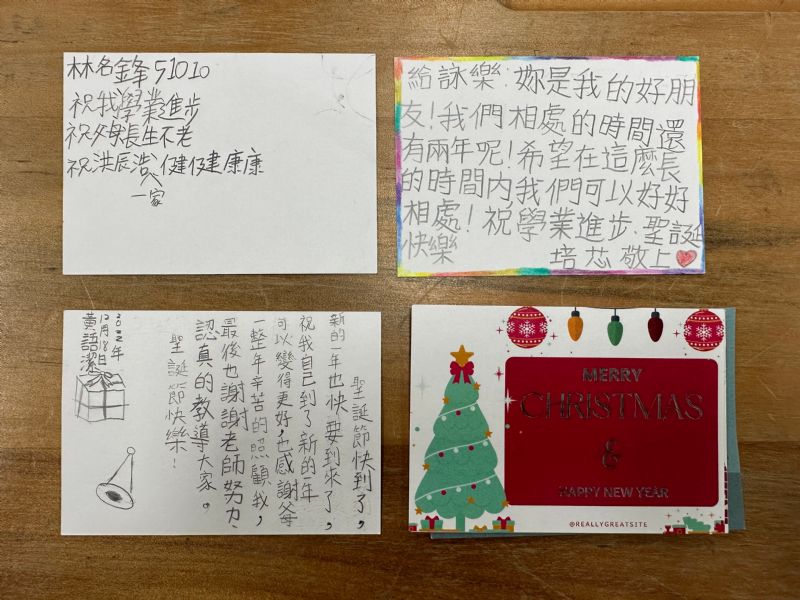 林名鋒 51010
祝我學業進步
祝父母長生不老
祝洪辰浩健健康康
一家
給詠樂:妳是我的好朋
友!我們相處的時間還
有兩年呢!希望在這麼長
的時間內我們可以好好
相處!祝學業進步.聖誕
快樂 培芯敬上
聖誕節快到了,
新的一年也快要到來了,
祝我自己到了新的一年
可以變得更好,也感謝爸母
一整年辛苦的照顧我,
最後也謝謝老師努力、
認真的教導大家。
聖誕節快樂!
2022年
12月18日
黃語潔
MERRY
CHRISTMAS
&
HAPPY NEW YEAR
@REALLYGREATSITE